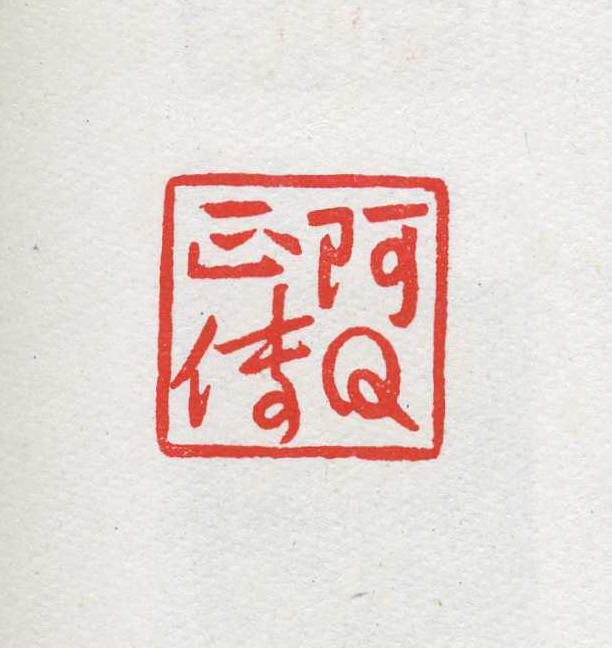 阿Q
正传